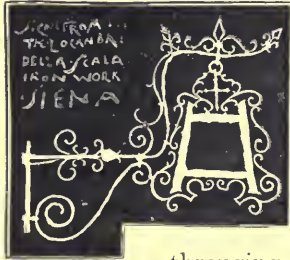 SIGN FROM
THE LOCANDA
DELLA SCALA
IRON WORK
SIENA
thronging